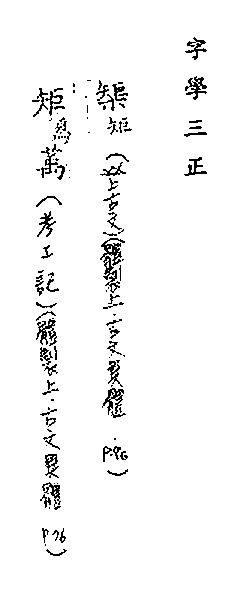 字學三正
榘矩(以上古文)(體製上·古文異體 P.76)
矩為萬(考工記)(體製上·古文異體 P.76)